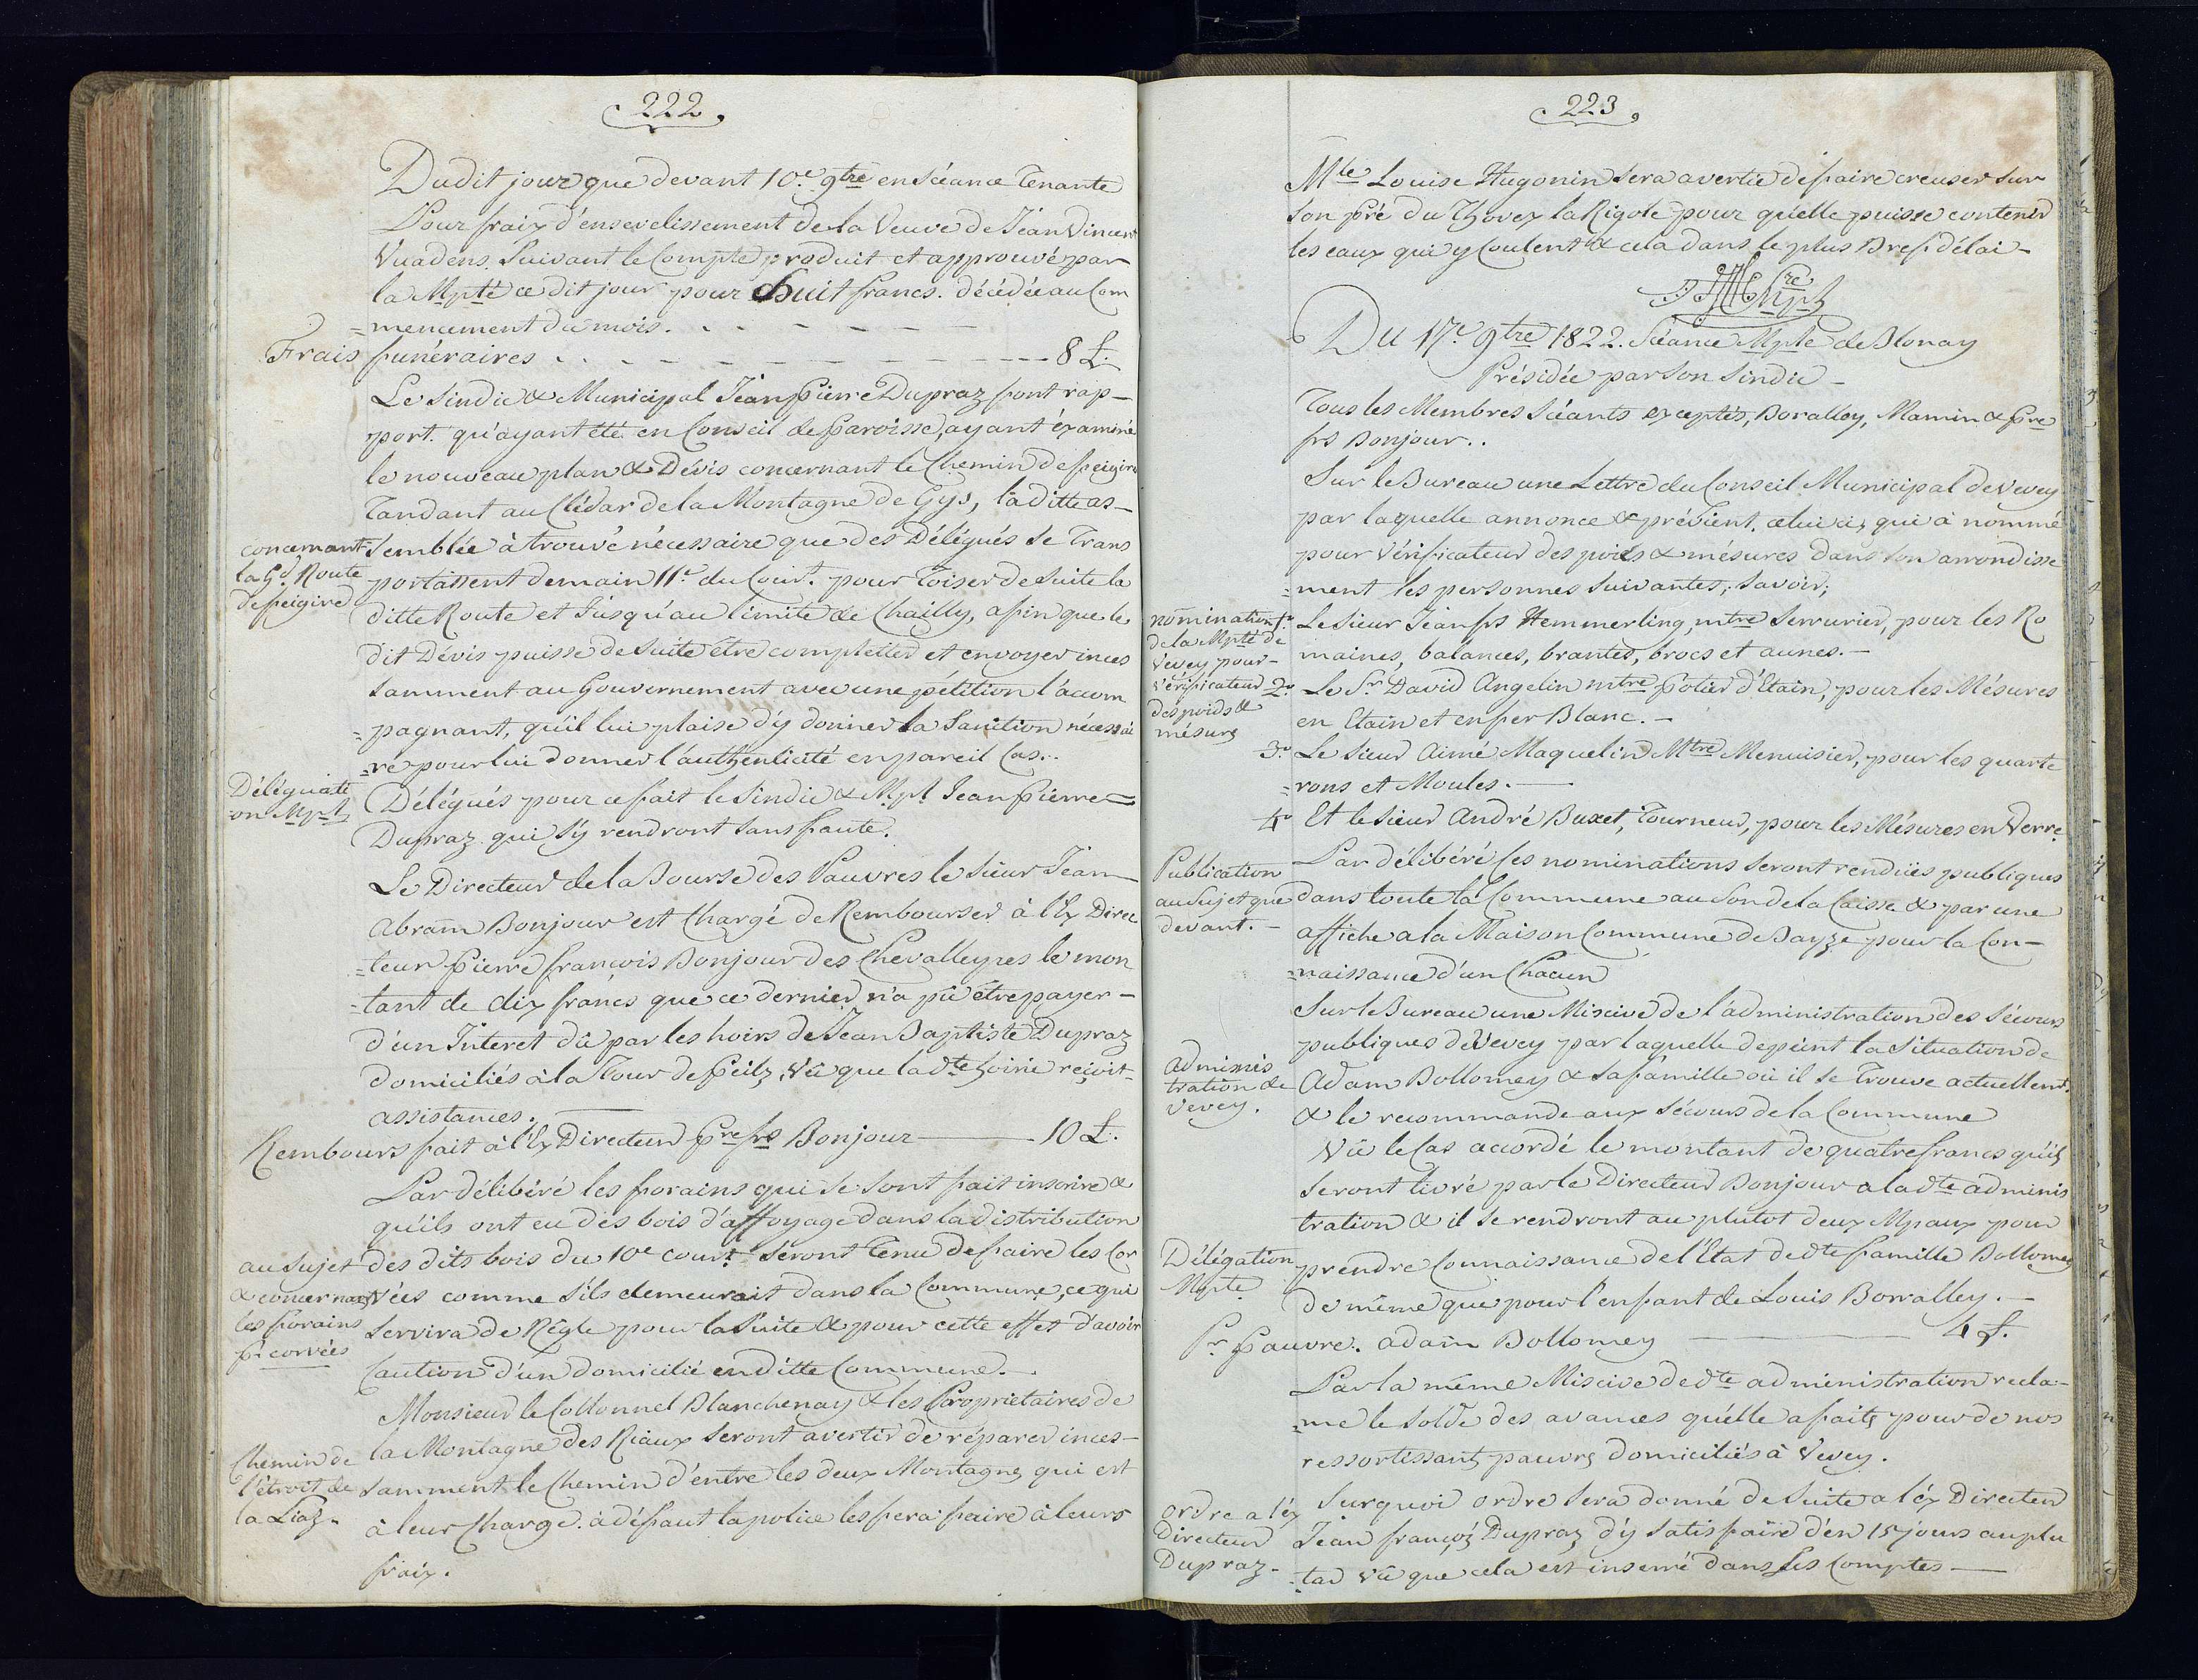 222.
Dudit jour que devant 10.e 9bre en Séance Tenante
Pour fraix d'ensevelissement de la Veuve de Jean Vincent
Vuadens. Suivant le Compte produit et approuvé par
la Mpté ce dit jour pour huit francs. décédée au Com
=mencement du mois.
Frais funéraires 8 £.
Le Sindic & Municipal Jean Pierre Dupraz font rap-
port. qu'ayant été en Conseil de Paroisse, ayant éxaminé
le nouveau plan & Dévis concernant le Chemin de feigire
Tandant au Clédar de la Montagne de Gys, la ditte as-
concernant la Gd Route de feigire
semblée à trouvé nécessaire que des Délégués se Trans
portassent demain 11.e du Court. pour Toiser de Suite la
ditte Route et Jusqu'au limite de Chailly, afin que le
dit Dévis puisse de Suite être completter et envoyer inces
samment au Gouvernement avec une pétition l'accom
=pagnant, qu'il lui plaise d'y donner la Sanction nécessai
=re pour lui donner l'authenticité en pareil Cas..
Déléguati
on Mple
Délégués pour ce fait le Sindic & Mpl Jean Pierre
Dupraz qui s'y rendront sans faute.
Le Directeur de la Bourse des Pauvres le Sieur Jean
Abram Bonjour est Chargé de Rembourser à l'Ex Direc
=teur Pierre françois Bonjour des Chevalleyres le mon
=tant de dix francs que ce dernier n'a pû être payer-
d'un Interet dû par les hoirs de Jean Baptiste Dupraz
domiciliés à la Tour de Peilz, Vû que la dte hoirie reçoit-
assistances.
Rembours fait à l'Ex Directeur Pre frs Bonjour 10 £.
Par délibéré les forains qui se sont fait inscrire &
qu'ils ont eu des bois d'affoyage dans la distribution
au Sujet
& concernant
les forains
pr corvées
des dits bois du 10e court séront Tenu de faire les Cor
vées comme s'ils demeurait dans la Commune, ce qui
servira de Règle pour la Suite & pour cette effet d'avoir
Caution d'un domicilié en ditte Commune.
Monsieur le Collonnel Blanchenay & les Proprietaires de
Chemin de
l'étroit de
la Liaz.
la Montagne des Riaux seront avertir de réparer inces-
samment le Chemin d'entre les deux Montagnes qui est
à leur Charge. à défaut la police les fera faire à leurs
fraix.
223.
Mlle Louise Hugonin sera avertie de faire creuser sur
son pré du Thovex la Rigole pour qu'elle puisse contenir
les eaux qui y Coulent & cela dans le plus Bref délai-
Du 17e 9bre 1822. Séance Mple de Blonay
Présidée par son Sindic-
Tous les Membres Séants exceptés, Boralley, Mamin & Pre
frs Bonjour..
Sur le Bureau une Lettre du Conseil Municipal de Vevey
par laquelle annonce & prévient. celui ci, qui à nommé
pour vérificateur des poids & mésures dans son arrondisse
=ment les personnes suivantes; savoir;
nomination
de la Mpté de
Vevey pour-
vérificateur
des poids &
mésures
1o Le Sieur Jean frs Hemmerling, mtre Serrurier, pour les Ro
maines, balances, brantes, brocs et aunes.-
2o Le Sr David Angelin mtre Potier d'Etain, pour les Mésures
en Etain et en fer Blanc.-
3o Le Sieur Aimé Maquelin Mtre Menuisier, pour les quarte
=rons et Moules.-
4o Et le Sieur André Buxet, Tourneur, pour les Mésures en Verre
Publication
au Sujet que
devant.-
Par délibéré ces nominations seront rendües publiques
dans toute la Commune au Son de la Caisse & par une
affiche a la Maison Commune de Bayze pour la Con-
=naissance d'un Chacun
Sur le Bureau une Miscive de l'administration des Sécours
publiques de Vevey par laquelle depeint la Situation de
adminis
tration de
Vevey.
Adam Bollomey & sa famille où il se Trouve actuellent.
& le recommande aux Sécours de la Commune
Vû le Cas accordé le montant de quatre francs qu'ils
seront livré par le Directeur Bonjour a la dte adminis
tration & il se rendront au plutot deux Mpaux pour
Délégation
Mple
prendre Connaissance de l'Etat de dte famille Bollomey
de même que pour l'enfant de Louis Borralley.-
Pr Pauvre. adam Bollomey 4 £.
Par la même Miscive de dte administration recla-
=me le Solde des avances qu'elle a faites pour de nos
ressortissants pauvres domiciliés à Vevey.
ordre a l'éx
Directeur
Dupraz-
Surquoi ordre Sera donné de Suite a l'éx Directeur
Jean françois Dupraz d'y Satisfaire d'en 15 jours au plu
=tard vû que cela est inserré dans Ses Comptes